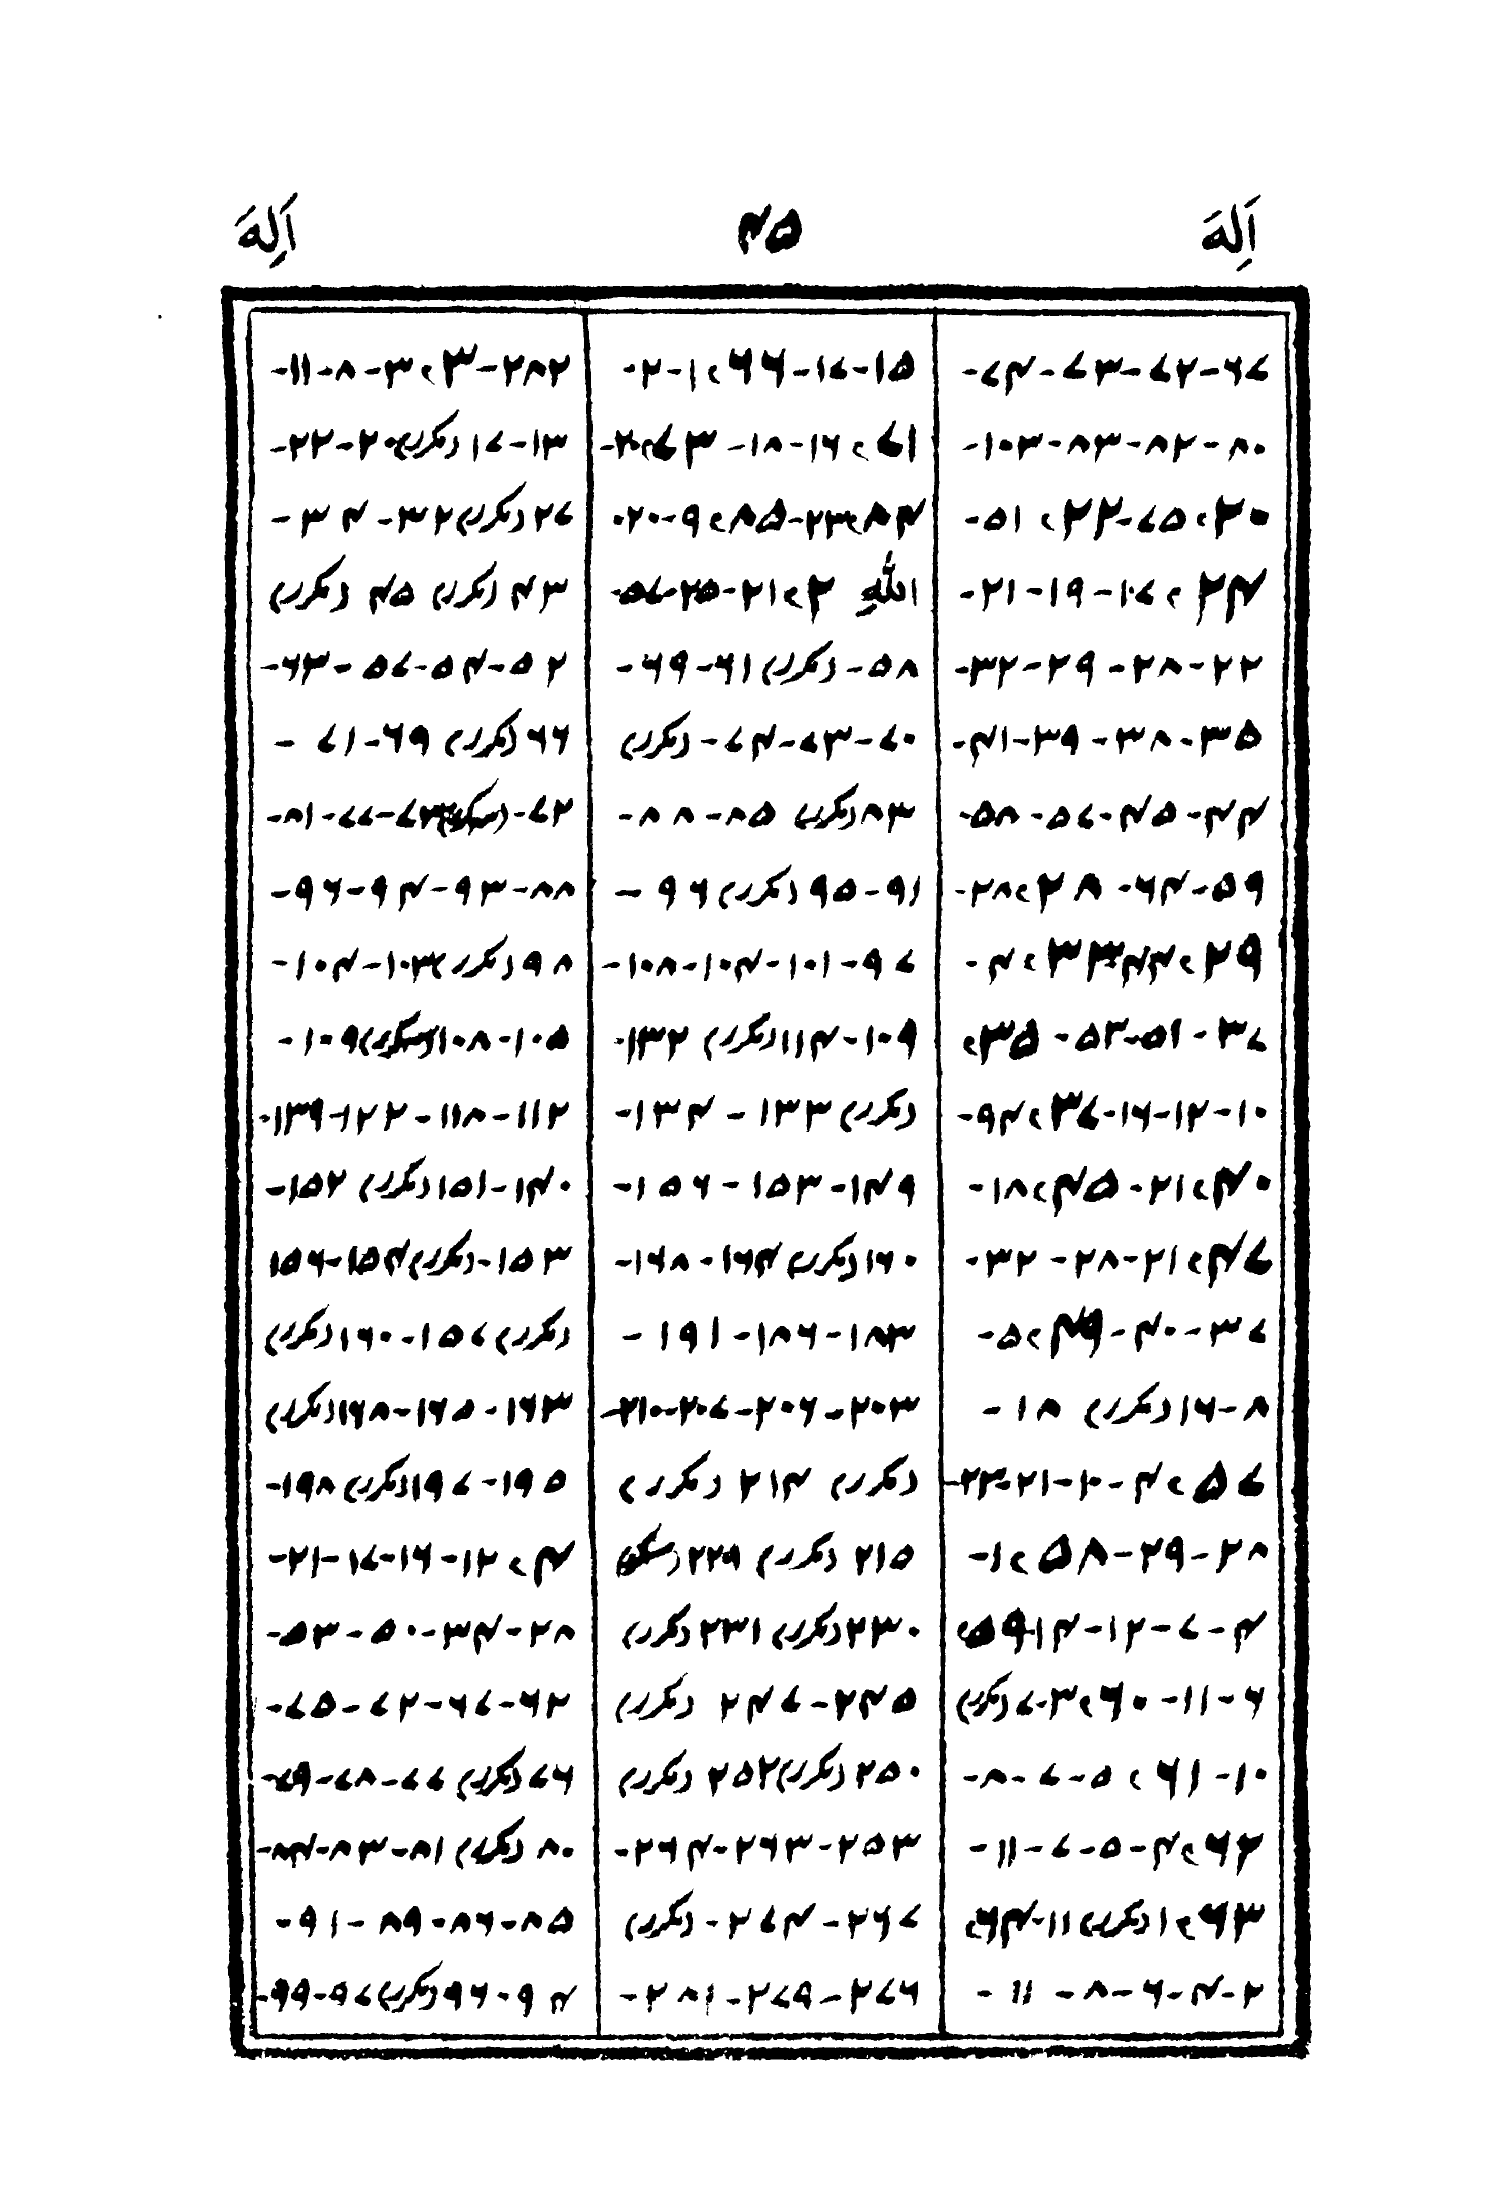 اَلِهَ ۴۵ اَلِهَ
۶۷-۷۲-۷۳-۷۴-
۸۰-۸۲-۸۳-۱۰۳-
۲۰، ۷۵-۲۲، ۵۱-
۲۴، ۱۷-۱۹-۲۱-
۲۲-۲۸-۲۹-۳۲-
۳۵-۳۸-۳۹-۴۱-
۴۴-۴۵-۵۷-۵۸-
۵۹-۶۴-۲۸، ۲۸-
۲۹، ۴۴-۳۳، ۴-
۳۷-۵۱-۵۳-۳۵،
۱۰-۱۲-۱۶-۳۷، ۹۴-
۴۰، ۲۱-۴۵، ۱۸-
۴۷، ۲۱-۲۸-۳۲-
۳۷-۴۰-۴۹، ۵-
۸-۱۶ (مکرر) ۱۸-
۵۷، ۴-۱۰-۲۱-۲۳-
۲۸-۲۹-۵۸، ۱-
۴-۷-۱۲-۱۴-۵۹،
۶-۱۱-۶۰، ۳-۷ (مکرر)
۱۰-۶۱، ۵-۷-۸-
۶۲، ۴-۵-۷-۱۱-
۶۳، ۱ (مکرر) ۱۱-۶۴،
۲-۴-۶-۸-۱۱-
۱۵-۱۷-۶۶، ۱-۲-
۷۱، ۱۶-۱۸-۷۳، ۲۰-
۸۴، ۲۳-۸۵، ۹-۲۰-
اللّٰهِ ۲، ۲۱-۲۵-۵۷-
۵۸-(مکرر) ۶۱-۶۹-
۷۰-۷۳-۷۴-(مکرر)
۸۳ (مکرر) ۸۵-۸۸-
۹۱-۹۵ (مکرر) ۹۶-
۹۷-۱۰۱-۱۰۴-۱۰۸-
۱۰۹-۱۱۴ (مکرر) ۱۳۲-
(مکرر) ۱۳۳-۱۳۴-
۱۴۹-۱۵۳-۱۵۶-
۱۶۰ (مکرر) ۱۶۴-۱۶۸-
۱۸۳-۱۸۶-۱۹۱-
۲۰۳-۲۰۶-۲۰۷-۲۱۰-
(مکرر) ۲۱۴ (مکرر)
۲۱۵ (مکرر) ۲۲۹ (مکرر)
۲۳۰ (مکرر) ۲۳۱ (مکرر)
۲۴۵-۲۴۷ (مکرر)
۲۵۰ (مکرر) ۲۵۲ (مکرر)
۲۵۳-۲۶۳-۲۶۴-
۲۶۷-۲۷۴-(مکرر)
۲۷۶-۲۷۹-۲۸۱-
۲۸۲-۳، ۳-۸-۱۱-
۱۳-۱۷ (مکرر) ۲۰-۲۲-
۲۷ (مکرر) ۳۲-۳۴-
۴۳ (مکرر) ۴۵ (مکرر)
۵۲-۵۴-۵۷-۶۳-
۶۶ (مکرر) ۶۹-۷۱-
۷۲-(مکرر) ۷۳-۷۷-۸۱-
۸۸-۹۳-۹۴-۹۶-
۹۸ (مکرر) ۱۰۳-۱۰۴-
۱۰۵-۱۰۸ (مکرر) ۱۰۹-
۱۱۲-۱۱۸-۱۲۲-۱۳۹-
۱۴۰-۱۵۱ (مکرر) ۱۵۲-
۱۵۳-(مکرر) ۱۵۴-۱۵۶
(مکرر) ۱۵۷-۱۶۰ (مکرر)
۱۶۳-۱۶۵-۱۶۸ (مکرر)
۱۹۵-۱۹۷ (مکرر) ۱۹۸-
۴، ۱۲-۱۶-۱۷-۲۱-
۲۸-۳۴-۵۰-۵۳-
۶۲-۶۷-۷۲-۷۵-
۷۶ (مکرر) ۷۷-۷۸-۷۹-
۸۰ (مکرر) ۸۱-۸۳-۸۴-
۸۵-۸۶-۸۹-۹۱-
۹۴-۹۶ (مکرر) ۹۷-۹۹-